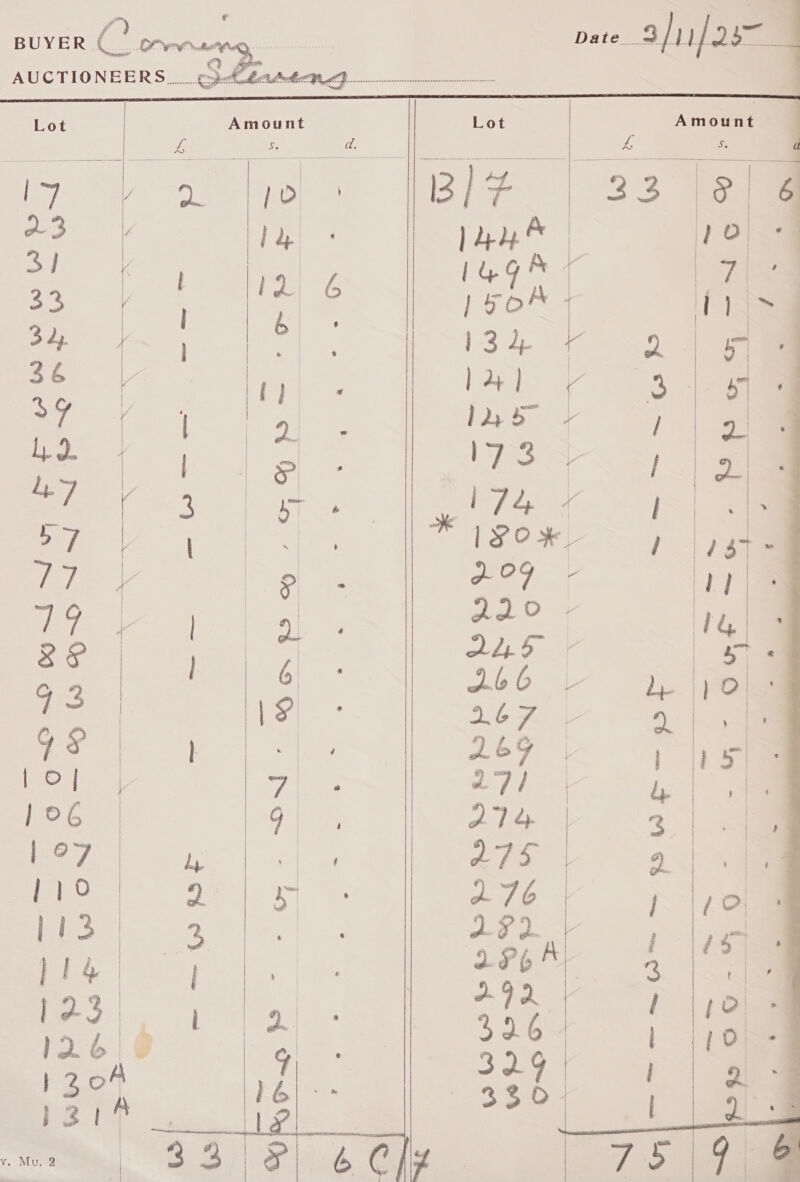 BUYER Corneng
AUCTIONEERS Stevens
Date 3/11/25
Lot Amount
£ s. d.
17 ✓ 2 10 -
23 ✓ 14 -
31 ✓ 1 12 6
33 ✓ 1 6 -
34 ✓ 1 - -
36 ✓ 11 -
39 ✓ 1 2 -
42 ✓ 1 8 -
47 ✓ 3 5 -
57 ✓ 1 - -
77 ✓ 8 -
79 ✓ 1 2 -
88 1 6 -
93 18 -
98 1 - -
101 ✓ 7 -
106 9 -
107 4 - -
110 2 5 -
113 3 - -
114 1 - -
123 1 2 -
126 9 -
130A 16 -
131A 18
33 8 6 C/7
v. Mu. 2
Lot Amount
£ s. d
B/7 33 8 6
144A 10 -
149A ✓ 7 -
150A ✓ 11 -
134 ✓ 2 5 -
141 ✓ 3 5 -
145 ✓ 1 2 -
173 ✓ 1 2 -
174 ✓ 1 - -
* 180* ✓ 1 15 -
209 ✓ 11 -
220 ✓ 14 -
245 ✓ 5 -
266 ✓ 4 10 -
267 ✓ 2 - -
269 ✓ 1 15 -
271 ✓ 4 - -
274 ✓ 3 - -
275 ✓ 2 - -
276 ✓ 1 10 -
282 ✓ 1 15 -
286A ✓ 3 - -
292 ✓ 1 10 -
326 ✓ 1 10 -
329 ✓ 1 2 -
330 ✓ 1 2 -
75 9 6